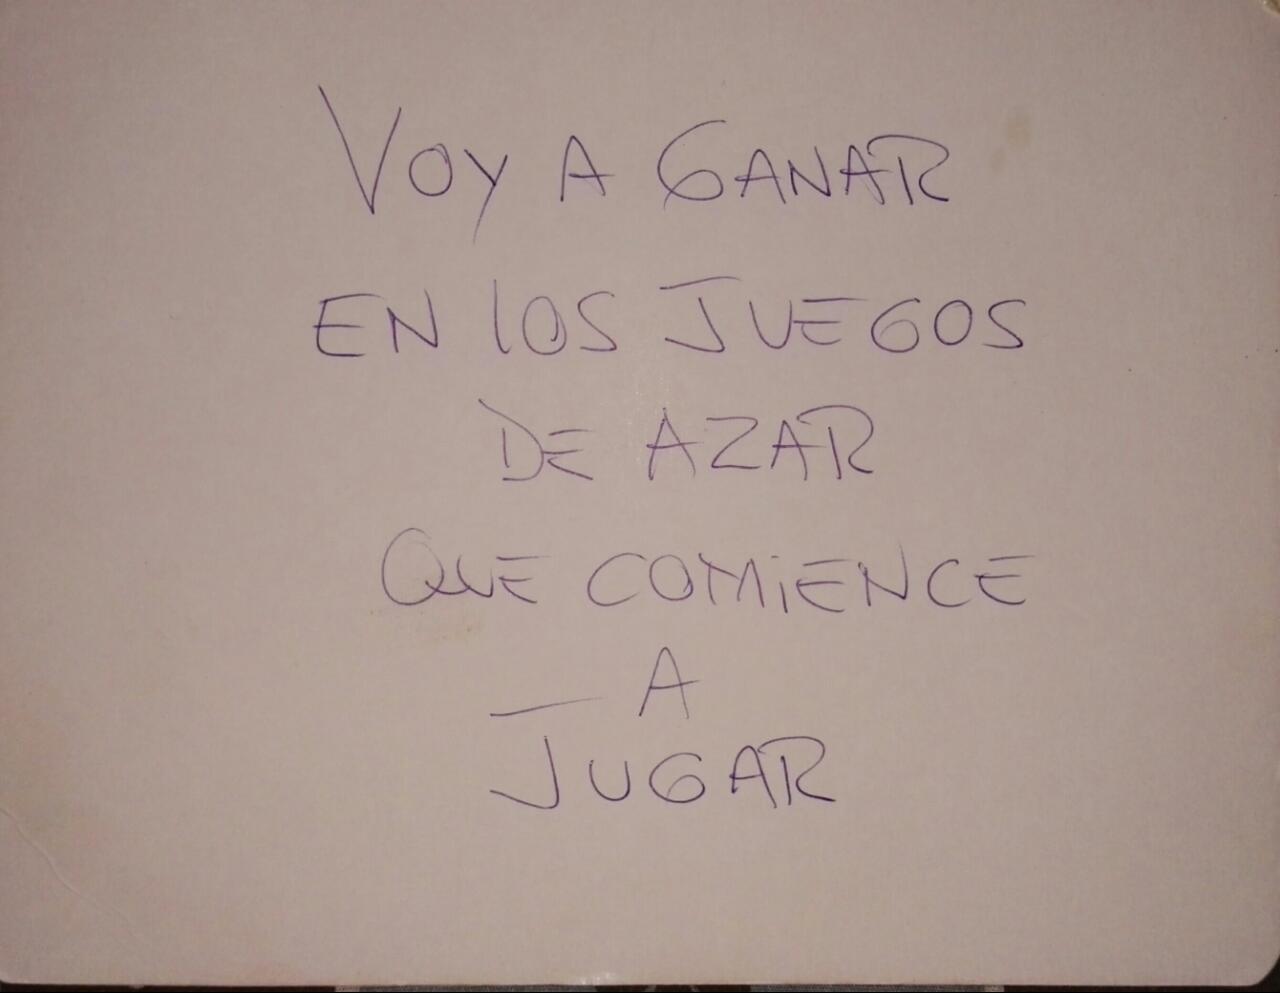 VOY A GANAR
EN LOS JUEGOS
DE AZAR
QUE COMIENCE
A
JUGAR